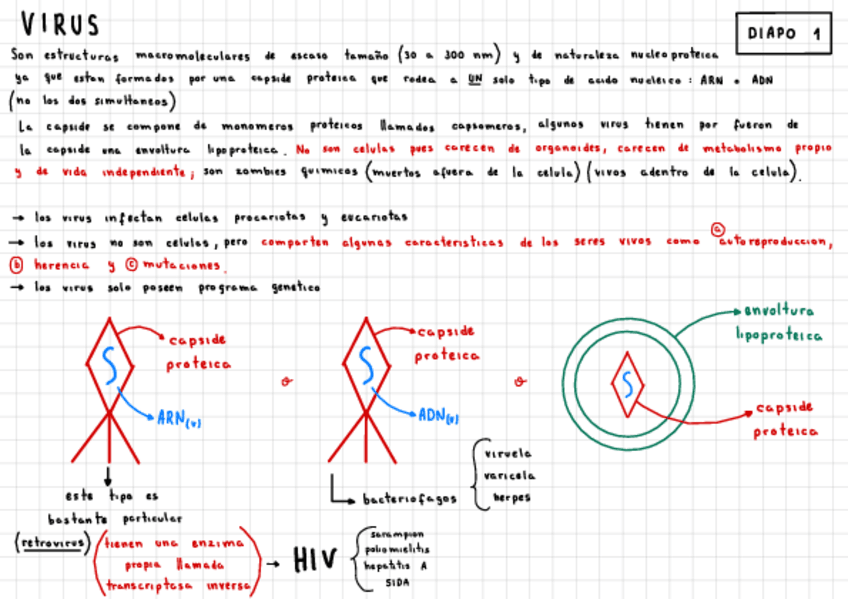 VIRUS
DIAPO 1
Son estructuras macromoleculares de escaso tamaño (30 a 300 nm) y de naturaleza nucleoproteica
ya que estan formados por una capside proteica que rodea a UN solo tipo de acido nucleico: ARN o ADN
(no los dos simultaneos)
La capside se compone de monomeros proteicos llamados capsomeros, algunos virus tienen por fueron de
la capside una envoltura lipoproteica. No son celulas pues carecen de organoides, carecen de metabolismo propio
y de vida independiente, son zombies quimicos (muertos afuera de la celula) (vivos adentro de la celula).
→ los virus infectan celulas procariotas y eucariotas
→ los virus no son celulas, pero comparten algunas caracteristicas de los seres vivos como ⓐ autoreproduccion,
ⓑ herencia y ⓒ mutaciones.
→ los virus solo poseen programa genetico
capside
proteica
ARN(v)
o
capside
proteica
ADN(v)
o
envoltura
lipoproteica
capside
proteica
este tipo es
bastante particular
(retrovirus)
(tienen una enzima
propia llamada
transcriptasa inversa)
→ HIV
sarampion
poliomielitis
hepatitis A
SIDA
bacteriofagos
viruela
varicela
herpes